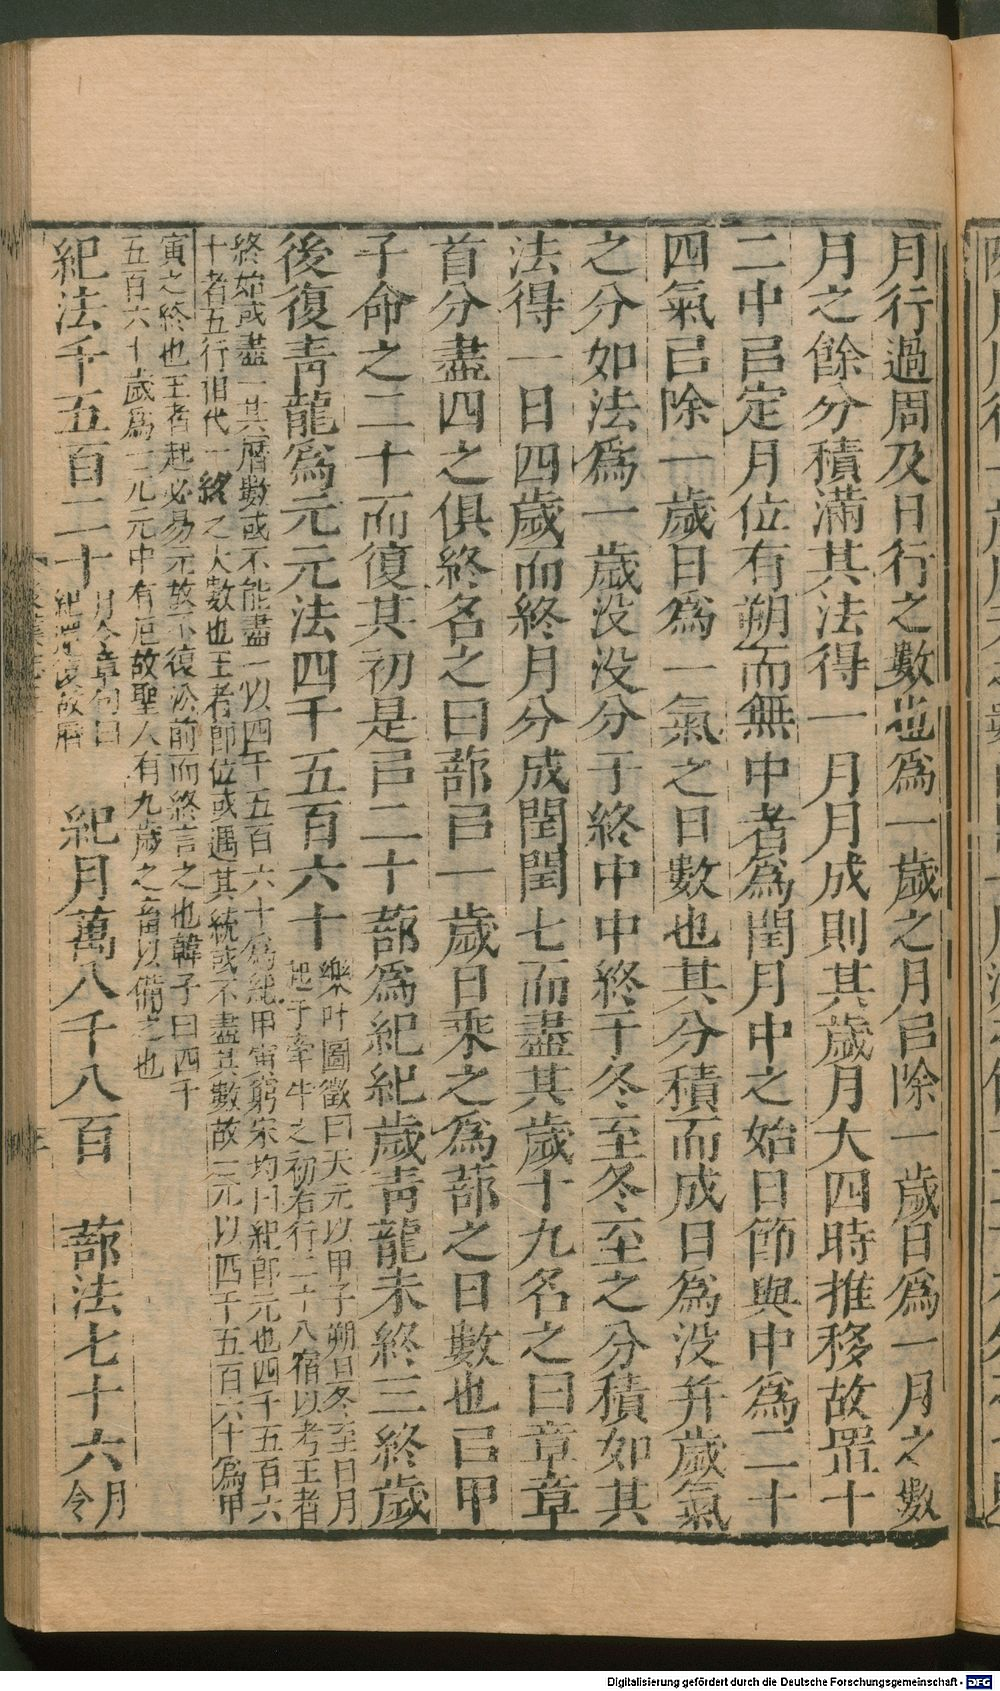 月行過周及日行之數也爲一歲之月㠯除一歲日爲一月之數
月之餘分積滿其法得一月月成則其歲月大四時推移故置十
二中㠯定月位有朔而無中者爲閏月中之始曰節與中爲二十
四氣㠯除一歲日爲一氣之日數也其分積而成日爲没并歲氣
之分如法爲一歲没没分于終中中終于冬至冬至之分積如其
法得一日四歲而終月分成閏閏七而盡其歲十九名之曰章章
首分盡四之俱終名之曰蔀㠯一歲日乘之爲蔀之日數也㠯甲
子命之二十而復其初是㠯二十蔀爲紀紀歲青龍未終三終歲
後復青龍爲元元法四千五百六十
樂叶圖徵曰天元以甲子朔旦冬至日月
起于牽牛之初右行二十八宿以考王者
終始或盡一其曆數或不能盡一以四千五百六十爲紀甲寅窮宋均曰紀即元也四千五百六
十者五行相代一終之大數也王者即位或遇其統或不盡其數故一元以四千五百六十爲甲
寅之終也王者起必易元故不復㳂前而終言之也韓子曰四千
五百六十歲爲一元元中有厄故聖人有九歲之畜以備之也
紀法千五百二十
月令章句曰
紀還復故曆
紀月萬八千八百 蔀法七十六
月
令
Digitalisierung gefördert durch die Deutsche Forschungsgemeinschaft - DFG